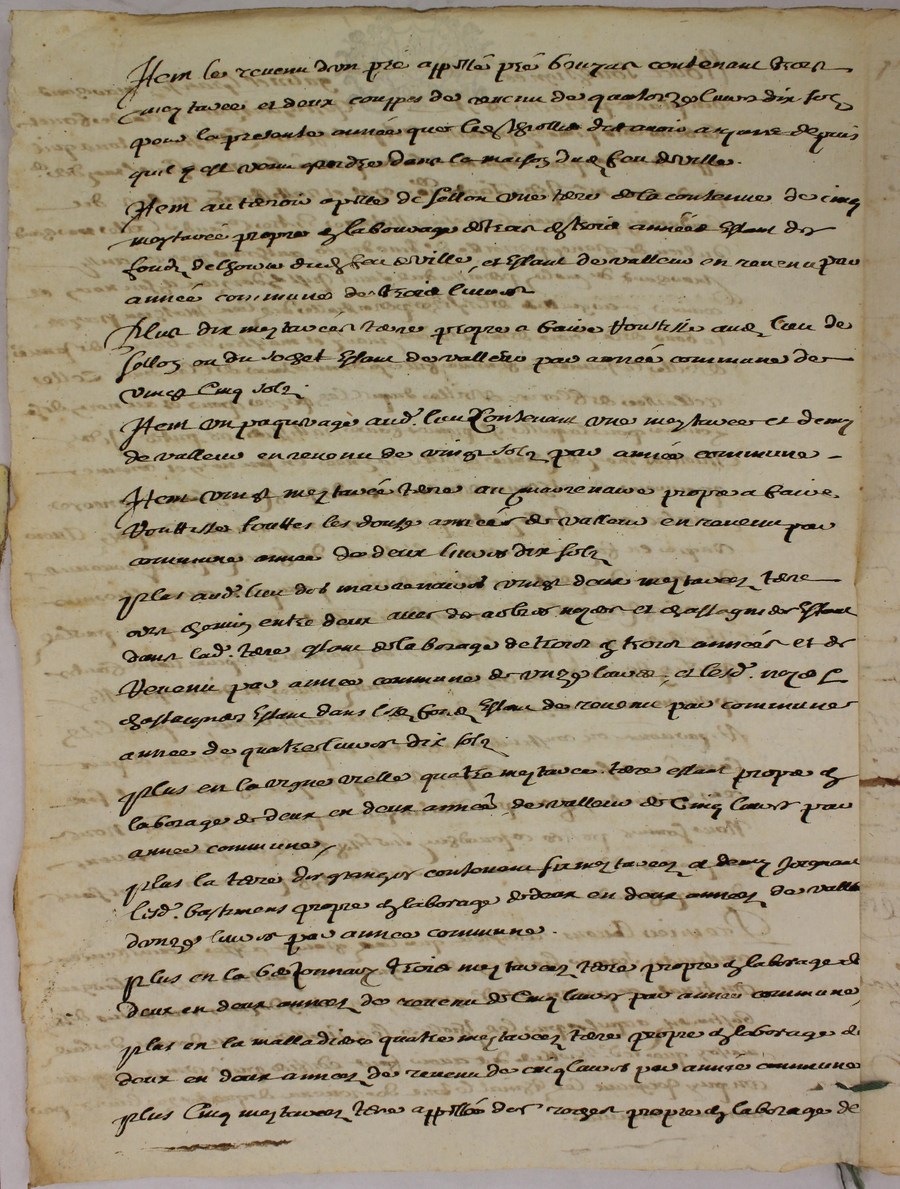 Item le revenu d'un pré appellé pré contenant trois
meytarees et deux couppes de revenu de quatorze livres dix sols
pour la presente année que les dit avoir depuis
quil y est venu dans la maison dud. feu deville.
Item au teroir apelle de sellon une tere de la contenue de cinq
meytarée propre a labourage de trois en trois années estant des
fondz de dud. feu deville, et estant de valleur en revenu par
année commune de trois livres
Plus dix meytarées tere propre a faire aud. lieu de
sellon ou du estant de valleur par année commune de
vingt cinq solz
Item un paquirage aud. lieu contenant une meytaree et demy
de valleur en revenu de vingt solz par année commune
Item vingt meytarée tere au propre a faire
touttes les douze années de valleur en revenu par
commune annee de deux livres dix solz
plus aud. lieu des vingt deux meytarees tere
chemin entre deux avec des arbres noyers et chastagniers estant
dans lad. tere estant de laborage de trois en trois années et de
revenu par année commune de unze livres, et lesd. noyers
chastagniers estant dans lesd. fondz estant de revenu par commune
année de quatre livres dix solz
plus en la vigne vielle quatre meytaree tere estant propre en
laborage de deux en deux années de valleur de cinq livres par
annee commune,
plus la tere des granges contenent six meytarees et demy joignant
lesd. bastimens propre en laborage de deux en deux années de valleur
d'onze livres par année commune.
plus en la trois meytarees tere propre en laborage de
deux en deux années de revenu de cinq livres par année commune,
plus en la malladiere quatre meytarees tere propre en laborage de
deux en deux années de revenu de cinq livres par année commune
plus cinq meytarees tere appellée des propre en laborage de